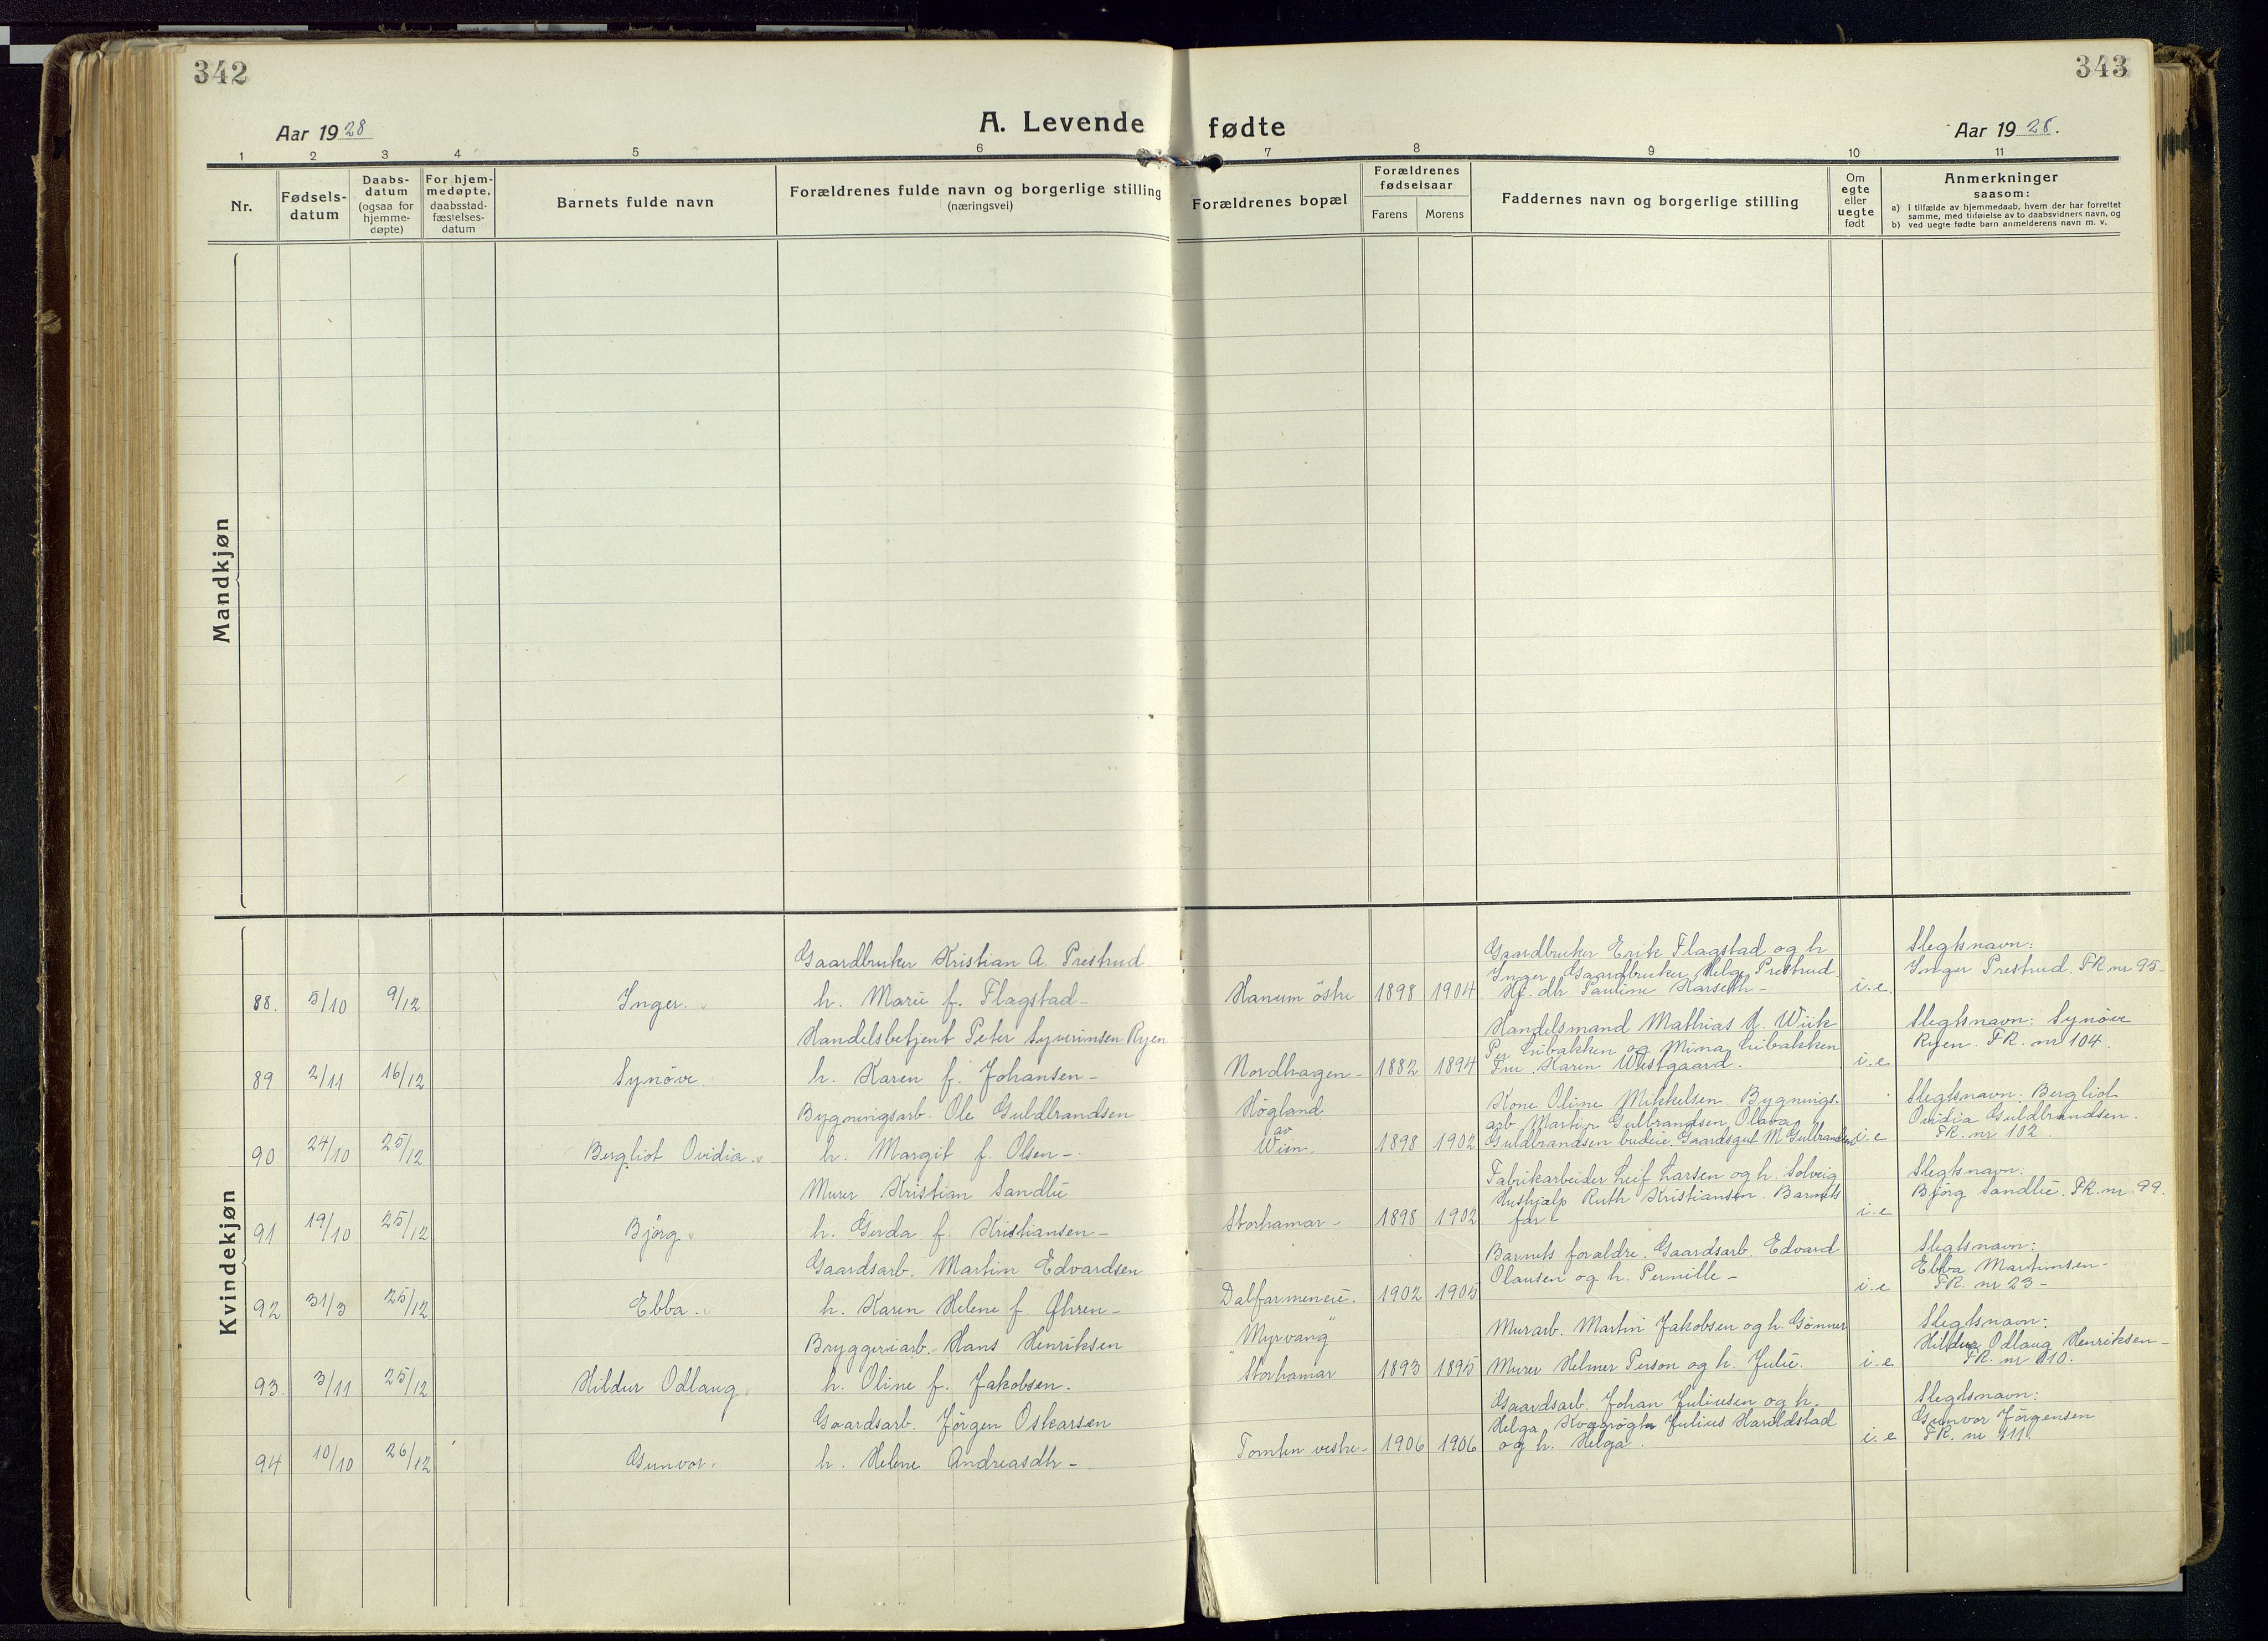 342
343
Aar 1928
A. Levende fødte
Aar 1928.
1 2 3 4 5 6 7 8 9 10 11
Nr.
Fødsels-
datum
Daabs-
datum
(ogsaa for
hjemme-
døpte)
For hjem-
medøpte,
daabsstad-
fæstelses-
datum
Barnets fulde navn
Forældrenes fulde navn og borgerlige stilling
(næringsvei)
Forældrenes bopæl
Forældrenes
fødselsaar
Farens
Morens
Faddernes navn og borgerlige stilling
Om
egte
eller
uegte
født
Anmerkninger
saasom:
a) I tilfælde av hjemmedaab, hvem der har forrettet
samme, med tilføielse av to daabsvidners navn, og
b) ved uegte fødte barn anmelderens navn m. v.
Mandkjøn
Kvindekjøn
88. 5/10 9/12 Inger.
Gaardbruker Kristian A. Prestrud
h. Marie f. Flagstad-
Hanum östre 1898 1904
Gaardbruker Erik Flagstad og h
Inger, Gaardbruker Helge Prestrud.
Hf. dh Pauline Karseth-
i.e.
Slegtsnavn:
Inger Prestrud. FR. nr 95-
89 2/11 16/12 Synöve
Handelsbetjent Peter Syverinsen Ryen
h. Karen f. Johansen-
Nordhagen- 1882 1894
Handelsmand Mathias H. Wiik
Per Libakken og Mina Libakken
Fru Karen Westgaard.
i.e
Slegtsnavn: Synöve
Ryen. FR. nr 104.
90 24/10 25/12 Bergliot Ovidia.
Bygningsarb. Ole Guldbrandsen
h. Margit f. Olsen-
Högland
av
Wien. 1898 1902
Kone Oline Mikkelsen Bygnings-
arb Martin Gulbrandsen, Olava
Guldbrandsen budeie. Gaardsgut M Gulbrandsen
i.e
Slegtsnavn: Bergliot
Ovidia Guldbrandsen.
FR. nr 102.
91 19/10 25/12 Björg
Murer Kristian Sandlie
h. Gerda f. Kristiansen-
Storhamar- 1898 1902
Fabrikarbeider Leif Larsen og h. Solveig
Hushjælp Ruth Kristiansen. Barnets
far-
i.e
Slegtsnavn:
Björg Sandlie. FR. nr 99.
92 31/3 25/12 Ebba.
Gaardsarb. Martin Edvardsen
h. Karen Helene f. Øhren-
Dalfarmeneie. 1902 1905
Barnets foraldre. Gaardsarb. Edvard
Olausen og h. Pernille-
i.e
Slegtsnavn:
Ebba Martinsen-
FR. nr 23-
93. 3/11 25/12 Hildur Odlaug
Bryggeriarb. Hans Henriksen
h. Oline f. Jakobsen.
"Myrvang"
Storhamar 1893 1895
Murarb. Martin Jakobsen og h. Gönner
Murer Helmer Person og h. Julie.
i.e
Slegtsnavn:
Hildur Odlaug Henriksen-
FR. nr 110.
94 10/10 26/12 Gunvor
Gaardsarb. Jörgen Oskarsen
h. Helene Andreasdh-
Tomten vestre- 1906 1906
Gaardsarb. Johan Juliusen og h.
Helga Kvægrögter Julius Haraldstad
og h. Helga.
i.e
Slegtsnavn:
Gunvor Jörgensen
FR. nr 111.